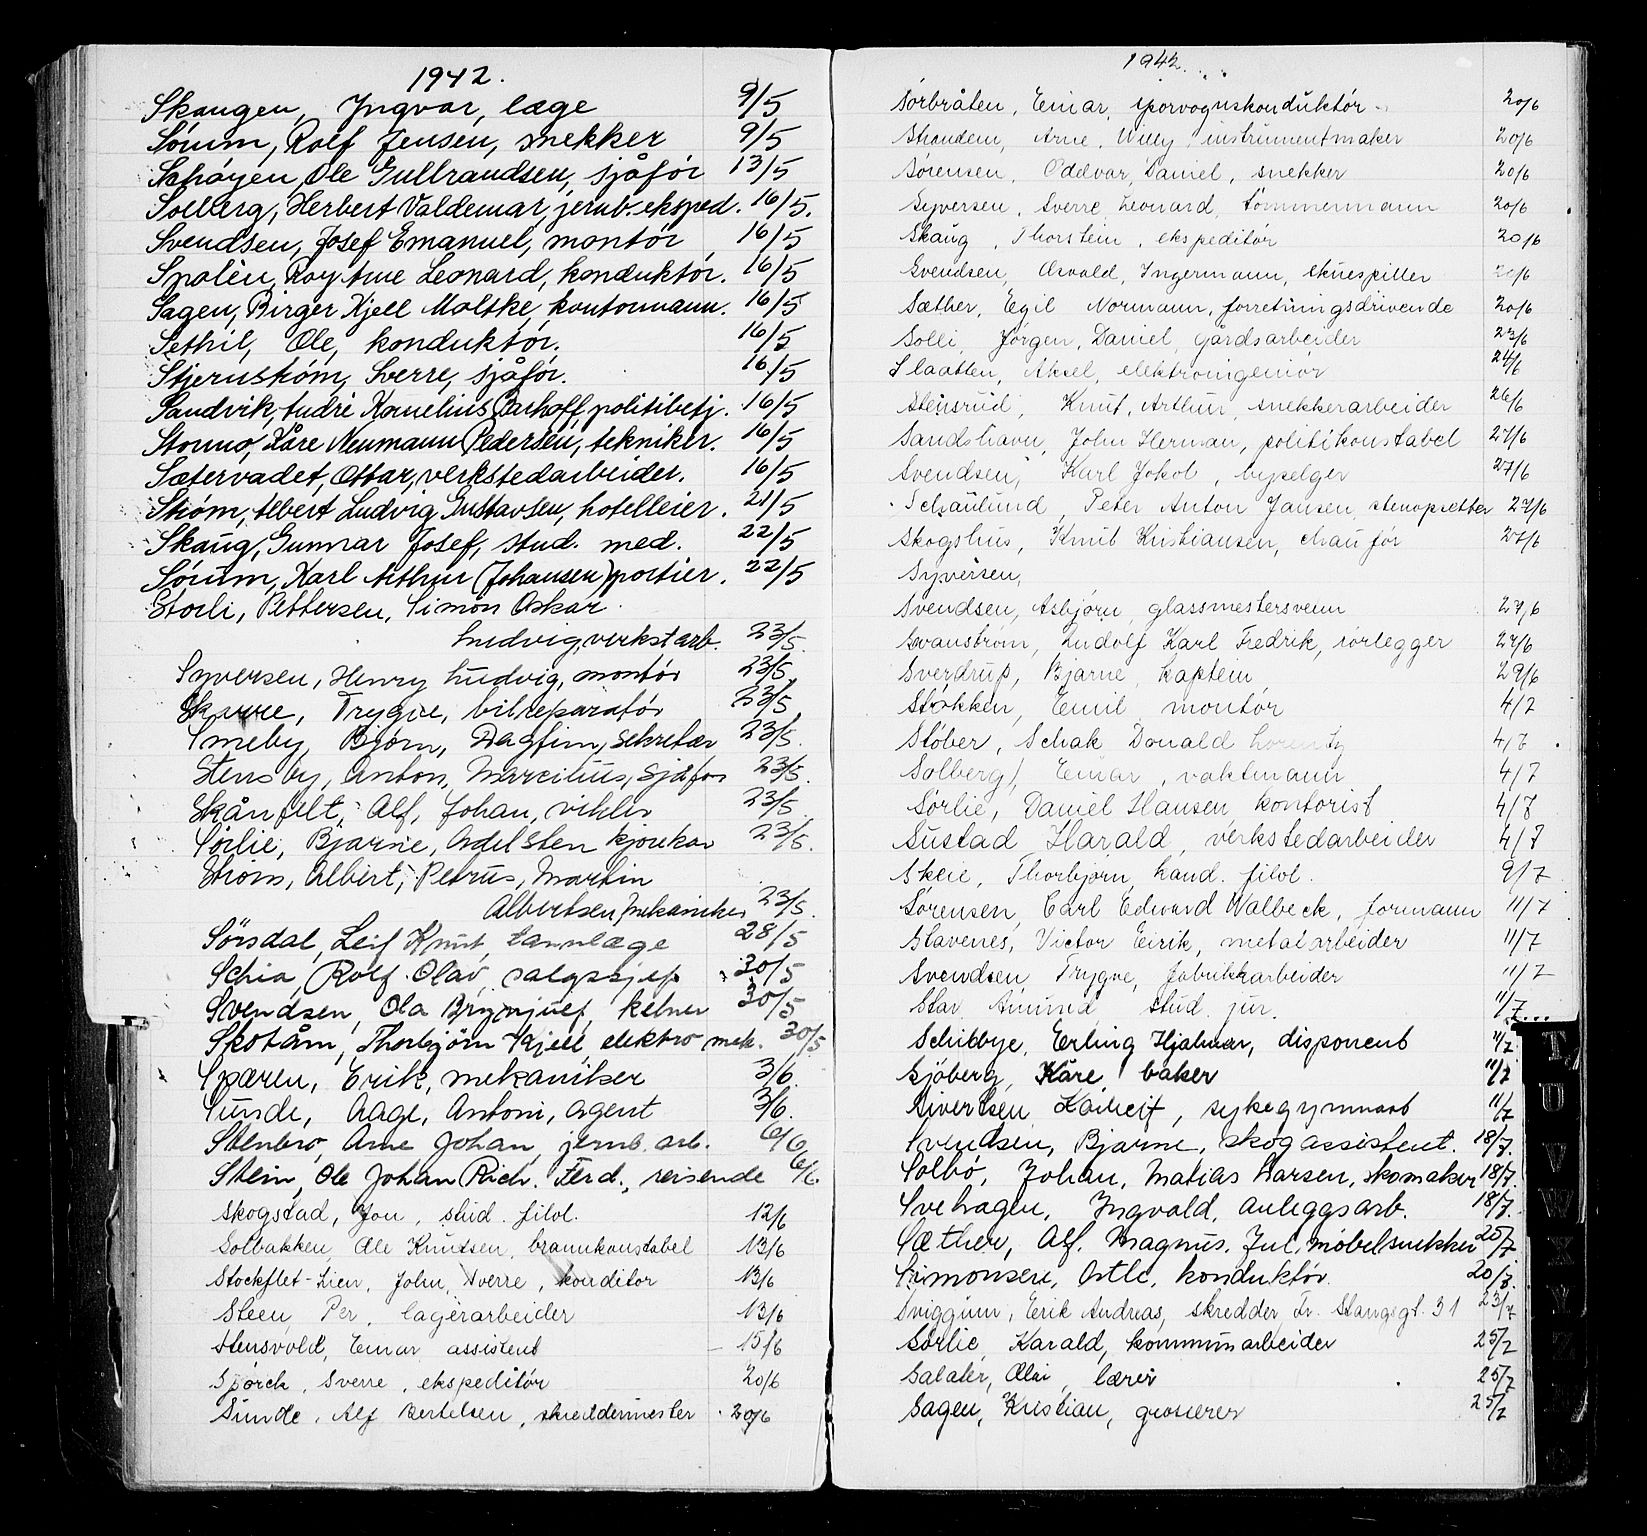 1942.
Skaugen, Yngvar, læge 9/5
Sørum, Rolf Jensen, snekker 9/5
Schøyen, Ole Gulbrandsen, sjåfør 13/5
Solberg, Herbert Valdemar, jernb. eksped. 16/5.
Svendsen, Josef Emanuel, montør 16/5
Spolèn, Roy Arne Leonard, konduktør. 16/5
Sagen, Birger Kjell Moltke, kontormann. 16/5
Sethil, Ole, konduktør. 16/5
Stjernstrøm, Sverre, sjåfør. 16/5
Sandvik, Andrè Kornelius Barhoff, politibetj. 16/5
Stormo, Kåre Neumann Pedersen, tekniker. 16/5
Sætervadet, Ottar, verkstedarbeider. 16/5
Strøm, Albert Ludvig Gustavsen, hotelleier. 21/5
Skaug, Gunnar Josef, stud. med. 22/5
Sørum, Karl Arthur (Johansen) portier. 22/5
Storli, Pettersen, Simon Oskar
Ludvig, verkst arb. 23/5.
Syversen, Henry Ludvig, montør 23/5
Skarre, Trygve, bilreparatør 23/5
Smeby, Bjørn, Dagfinn, sekretær 23/5.
Stensby, Anton, Marcilius, sjåfør 23/5.
Skånfelt, Alf, Johan, vikler 23/5
Sørlie, Bjarne, Adelsten kjørekar 23/5.
Strøm, Albert, Petrus, Martin
Albertsen, mekaniker 23/5.
Sørsdal, Leif Knut, tannlæge 28/5
Schia, Rolf Olav, salgssjef 30/5
Svendsen, Ola Brynjulf, kelner 30/5
Skotåm, Thorbjörn Kjell, elektro mek. 30/5
Sparen, Erik, mekaniker 3/6
Sunde, Aage, Antoni, agent 3/6.
Stenbro, Arne Johan, jernb. arb. 6/6
Stein, Ole Johan Rich. Ferd., reisende 6/6
Skogstad, Jon, stud. filol. 12/6
Solbakken, Ole Knutsen, brannkonstabel 13/6
Stockflet-Lien, John, Sverre, konditor 13/6
Steen, Per, lagerarbeider 13/6
Stensvold, Einar assistent 15/6
Spørck, Sverre, ekspeditør 20/6
Sunde, Alf Bertelsen, skreddermester 20/6
1942.
Sørbråten, Einar, sporvognskonduktør 20/6
Stranden, Arne, Willy, instrumentmaker 20/6
Sørensen, Oddvar, Daniel, snekker 20/6
Syversen, Sverre, Leonard, Tømmermann 20/6
Skaug, Thorstein, ekspeditør 20/6
Svendsen, Osvald, Ingermann, skuespiller 20/6
Sæther, Egil Normann, forretningsdrivende 20/6
Solli, Jørgen, Daniel, gårdsarbeider 23/6
Slaatten, Aksel, elektroingeniør 24/6
Stensrud, Knut, Arthur, snekkerarbeider 26/6
Sandshavn, John Herman, politikonstabel 27/6
Svendsen, Karl Jokob, byselger 27/6
Schaulund, Peter Anton Jansen, stenopsetter 27/6
Skogshus, Knut Kristiansen, chaufør 27/6
Syversen,
Svendsen, Asbjørn, glassmestersvenn 27/6
Svanstrøm, Ludolf Karl Fredrik, rørlegger 27/6
Sverdrup, Bjarne, kaptein 29/6
Støkken, Emil montør 4/7
Støber, Schak Donald Lorentz 4/7
Solberg, Einar, vaktmann 4/7
Sørlie, Daniel Hansen, kontorist 4/7
Sustad Harald, verkstedarbeider 4/7
Skeie, Thorbjørn, kand. filol. 9/7
Sørensen, Carl Edward Walbeck, formann 11/7
Slavenes, Victor Eirik, metalarbeider 11/7
Svendsen, Trygve, fabrikkarbeider 11/7
Star, Amund stud. jur. 11/7
Schibbye, Erling Hjalmar, disponent 11/7
Sjöberg, Kåre, baker 11/7
Sivertsen, sykegymnast 11/7
Svendsen, Bjarne, skogassistent. 18/7.
Solbø, Johan, Matias Larsen, skomaker 18/7.
Svehagen, Ingvald, anleggsarb. 18/7.
Sæther, Alf. Magnus. Jul. møbelsnekker 20/7
Simonsen, Atle, konduktør. 20/7.
Sviggum, Erik Andreas, skredder Fr. Stangsgt. 31 23/7
Sørlie, Harald, kommunarbeider 25/7
Salater, Olai, lærer 25/7
Sagen, Kristian, grosserer 25/7
T
U
V
W
X
Y
Z
Æ
Ø